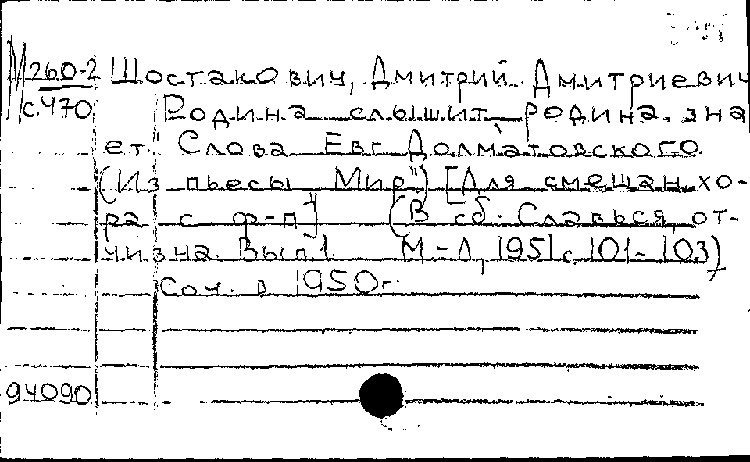 М260-2 Шостакович, Дмитрий Дмитриевич
с.470 Родина слышит, родина зна
ет. Слова Евг Долматовского
(Из пьесы "Мир") [Для смешан. хо-
ра с ф-п] (В сб. Славься, от-
чизна. Вып.1 М-Л, 1951 с. 101-103)
Соч. в 1950г.
94090